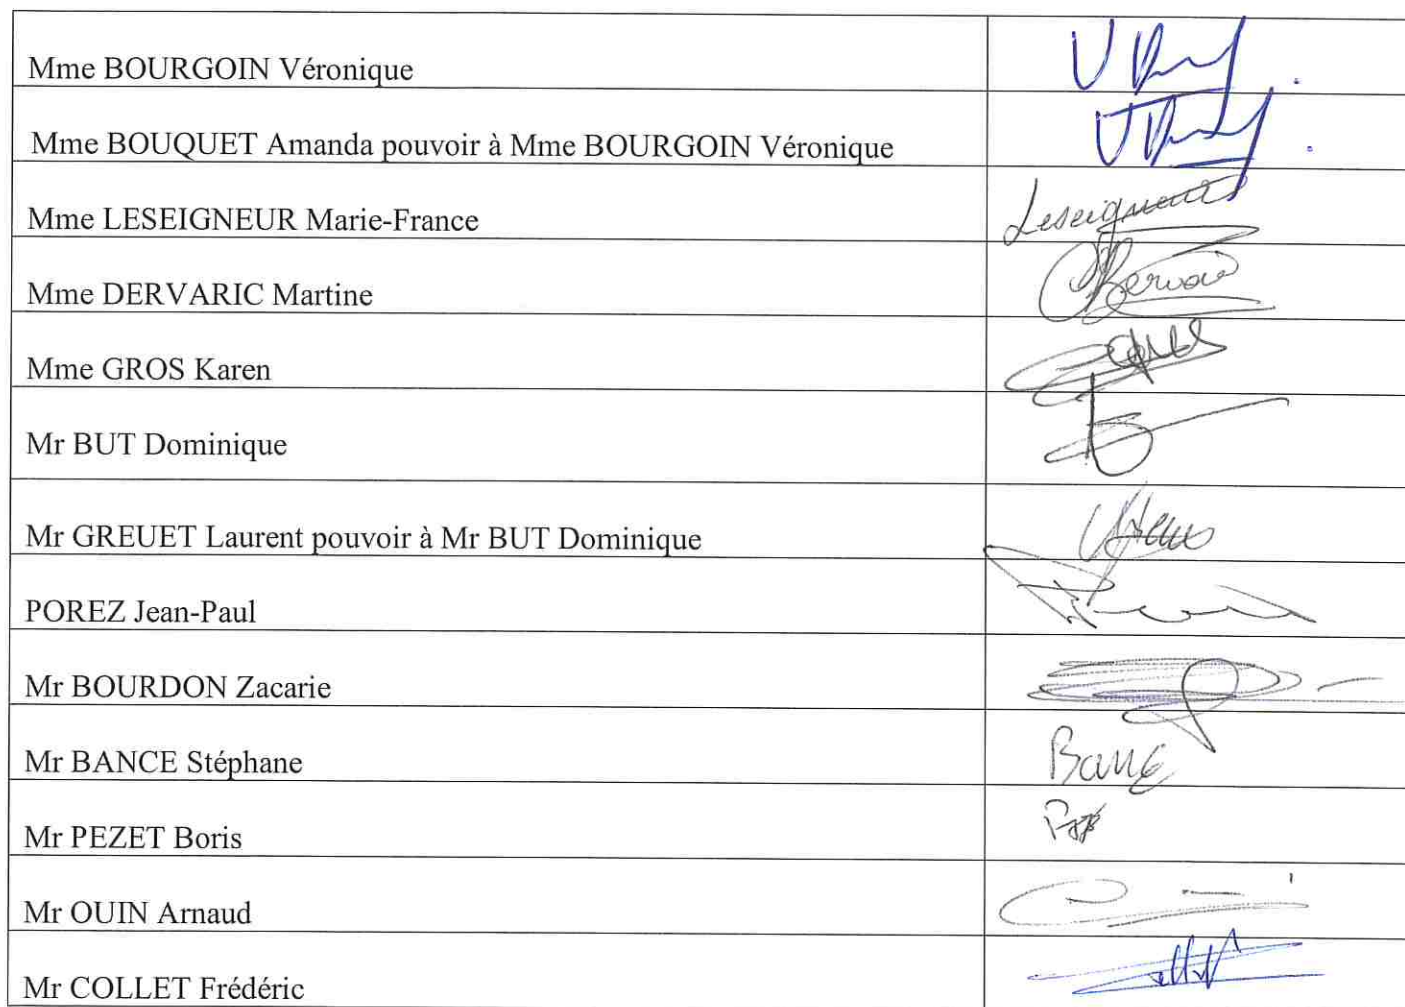 Mme BOURGOIN Véronique
Mme BOUQUET Amanda pouvoir à Mme BOURGOIN Véronique
Mme LESEIGNEUR Marie-France
Leseigneur
Mme DERVARIC Martine
Mme GROS Karen
Mr BUT Dominique
Mr GREUET Laurent pouvoir à Mr BUT Dominique
POREZ Jean-Paul
Mr BOURDON Zacarie
Mr BANCE Stéphane
Bance
Mr PEZET Boris
Mr OUIN Arnaud
Mr COLLET Frédéric